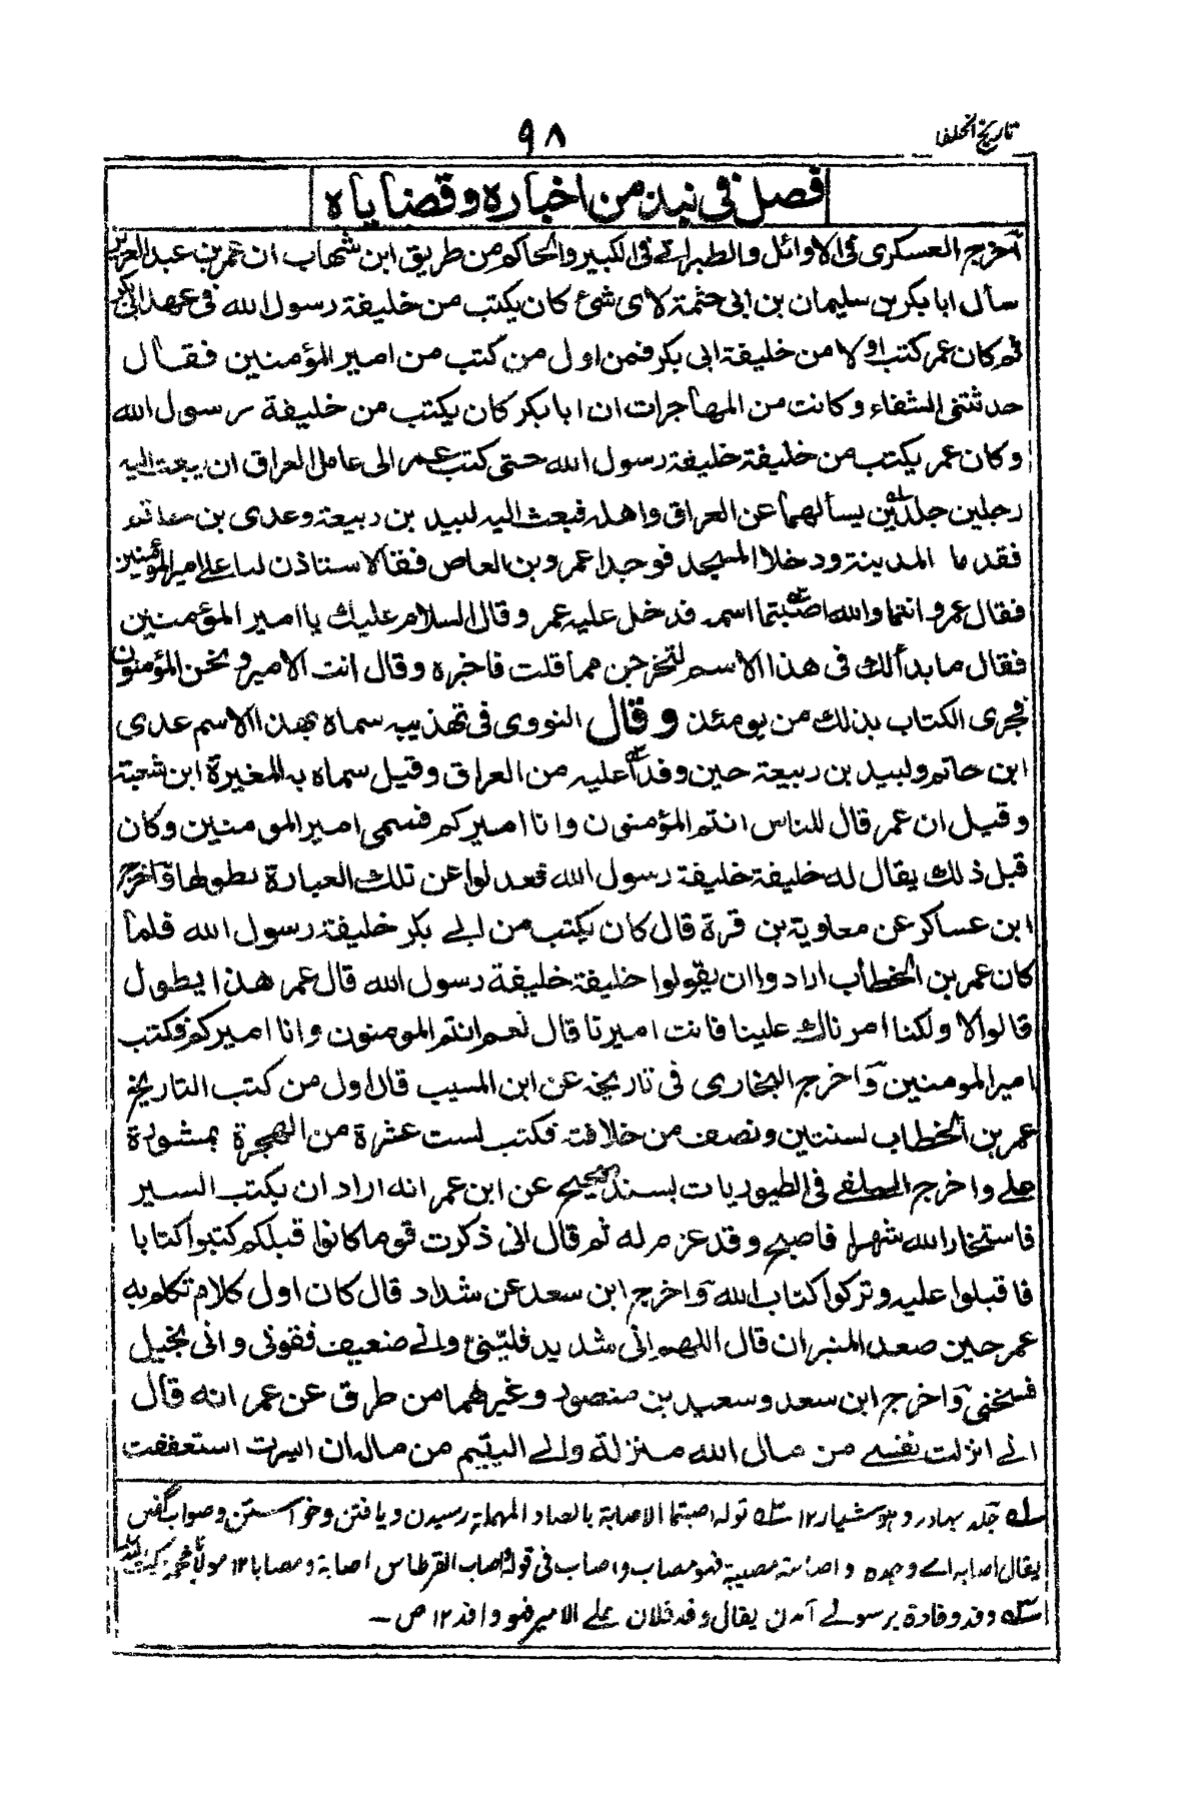 تاريخ الخلفا
٩٨
فصل في نبذ من اخباره وقضاياه
آخرج العسكرى فى الاوائل والطبرانے فى الكبير والحاكم من طريق ابن شهاب ان عمر بن عبد العزيز
سأل ابا بكر بن سليمان بن ابى حثمة لاى شئ كان يكتب من خليفة رسول الله فى عهد ابى بكر
ثم كان عمر كتب اولا من خليفة ابى بكر فمن اول من كتب من امير المؤمنين فقال
حدثتنى الشفاء وكانت من المهاجرات ان ابا بكر كان يكتب من خليفة رسول الله
وكان عمر يكتب من خليفة خليفة رسول الله حتى كتب عمر الى عامل العراق ان يبعث اليه
رجلين جلدين يسألهما عن العراق واهله فبعث اليه لبيد بن ربيعة وعدى بن حاتم
فقدما المدينة ودخلا المسجد فوجدا عمرو بن العاص فقالا استاذن لنا على امير المؤمنين
فقال عمرو انتما والله اصبتما اسمه فدخل عليه عمرو قال السلام عليك يا امير المؤمنين
فقال ما بدألك فى هذا الاسم لتخرجن مما قلت فاخبره وقال انت الامير ونحن المؤمنون
فجرى الكتاب بذلك من يومئذ وقال النووى فى تهذيبه سماه بهذا الاسم عدى
ابن حاتم ولبيد بن ربيعة حين وفدا عليه من العراق وقيل سماه به المغيرة ابن شعبة
وقيل ان عمر قال للناس انتم المؤمنون وانا اميركم فسمى امير المومنين وكان
قبل ذلك يقال له خليفة خليفة رسول الله فعدلوا عن تلك العبارة لطولها وآخرج
ابن عساكر عن معاوية بن قرة قال كان يكتب من ابے بكر خليفة رسول الله فلما
كان عمر بن الخطاب ارادوا ان يقولوا خليفة خليفة رسول الله قال عمر هذا يطول
قالوا لا ولكنا امرناك علينا فانت اميرنا قال نعم انتم المومنون وانا اميركم فكتب
امير المومنين وَاخرج البخارى فى تاريخه عن ابن المسيب قال اول من كتب التاريخ
عمر بن الخطاب لسنتين ونصف من خلافته فكتب لست عشرة من الهجرة بمشورة
علے واخرج السلفے فى الطيوريات بسند صحيح عن ابن عمر انه اراد ان يكتب السير
فاستخار الله شهرا فاصبح وقد عزم له ثم قال انى ذكرت قوما كانوا قبلكم كتبوا كتابا
فاقبلوا عليه وتركوا كتاب الله وَاخرج ابن سعد عن شداد قال كان اول كلام تكلم به
عمر حين صعد المنبر ان قال اللهم انى شديد فليّنى وانے ضعيف فقونى وانى بخيل
فسخنى وَاخرج ابن سعد وسعيد بن منصور وغيرهما من طرق عن عمر انه قال
انے انزلت نفسے من مال الله منزلة والے اليتيم من ماله ان ايسرت استعففت
سلہ جَلد بہادر و ہوشیار ١٢ سلہ قوله اصبتما الاصابة بالصاد المهملة رسیدن و یافتن و خواستن و صواب گفتن
يقال اصابه اے وجده و اصابته مصيبة فهو مصاب و اصاب فى قوله و اصاب القرطاس اصابة و مصابا ١٢
سلہ وفد وفادة برسولے آمدن يقال وفد فلان علے الامير فهو وافد ١٢ ص ـ